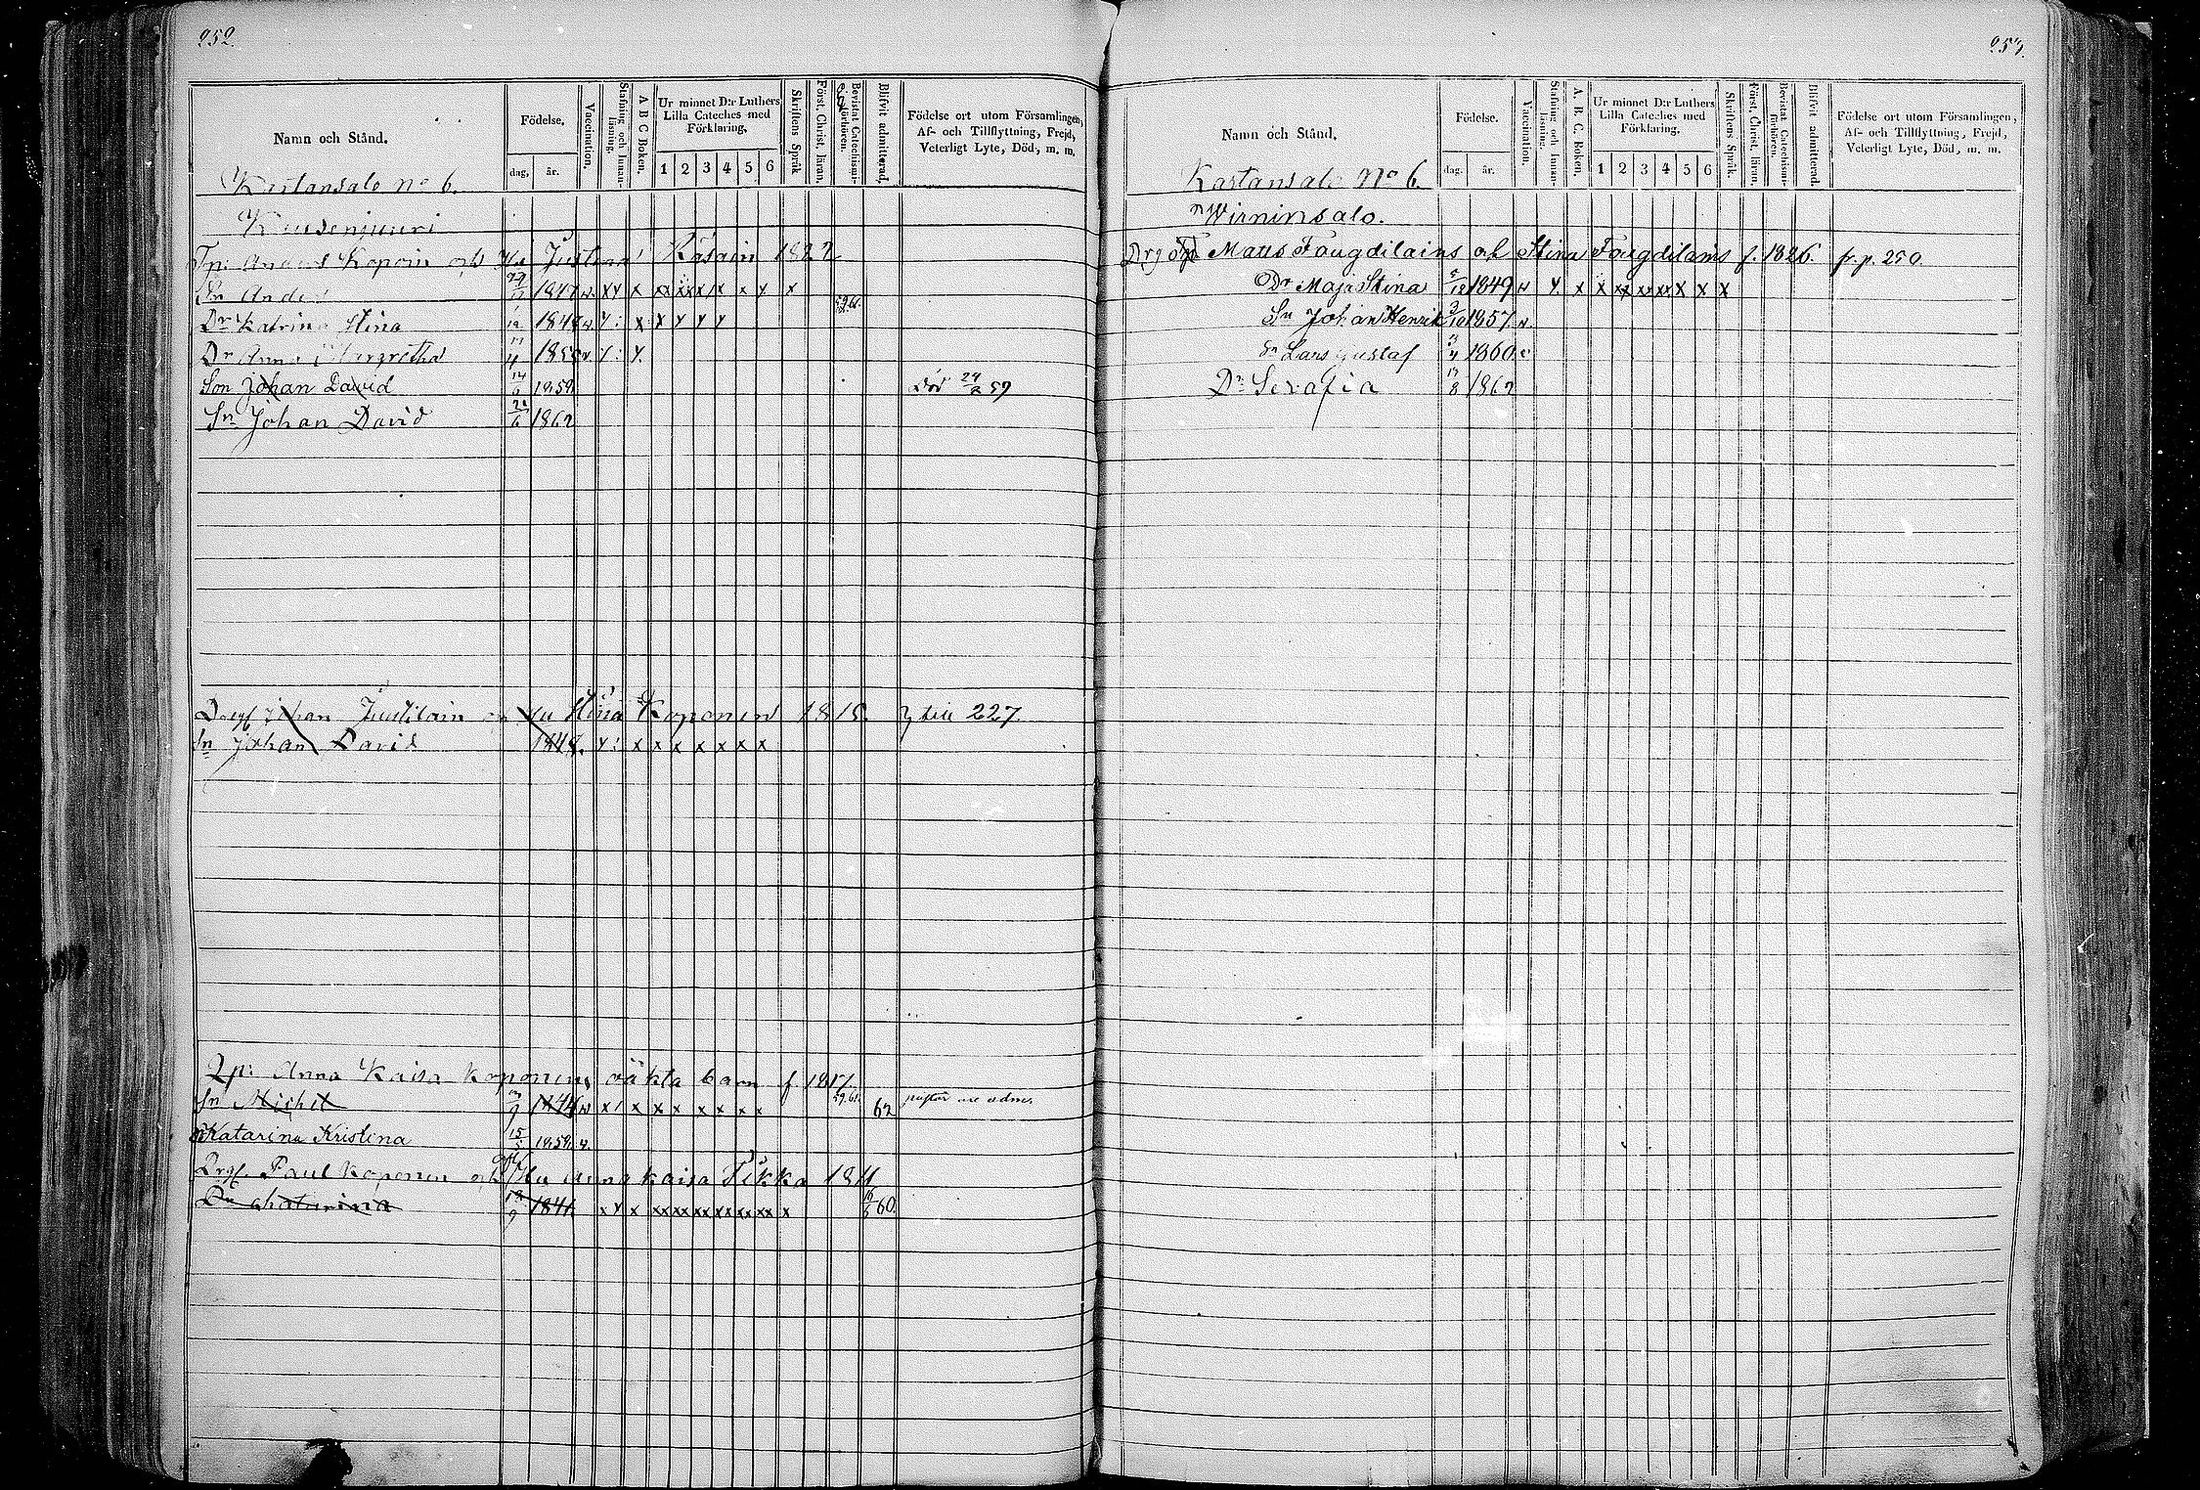 252.
Namn och Stånd.
Födelse.
dag. år.
Vaccination.
Stafning och Innanläsning.
A B C Boken.
Ur minnet D:r Luthers Lilla Cateches med Förklaring.
1 2 3 4 5 6
Skriftens Språk
Först. Christ. läran.
Bevistat Catechismiförhören.
Blifvit admitterad.
Födelse ort utom Församlingen, Af- och Tillflyttning, Frejd, Veterligt Lyte, Död, m. m.
Kartansalo No 6.
Kuusenjuuri
Anders Kopoin och Hu Justina Räsäin 1822
Sn Anders 1847 v. x y x xx xx x x x y x 59.61.
Dr Katrina Stina 1/12 1848 v. y : x x y y y
Dr Anna Margretha 17/4 1855 v. y : y.
Son Johan David 14/ 1858 Död 24/2 59
Sn Johan David 1862
Johan Juutilain Hu Stina Koponen 1815. till 227.
Sn Johan David 1848. y : x x x x x x x
Anna Kaisa Koponens oäkta barn f 1817.
Sn Michel 1844 v x / x x x x x x x 59.61. 62
Katarina Kristina 15/5 1858 v.
Drgf Paul Koponen och Hu Anna Kaisa Tikka 1811
Dr Chatarina 1841 x y x xx xx xx xx xx xx x 60.
253.
Namn och Stånd.
Födelse.
dag. år.
Vaccination.
Stafning och Innanläsning.
A. B. C. Boken.
Ur minnet D:r Luthers Lilla Cateches med Förklaring.
1 2 3 4 5 6
Skriftens Språk.
Först. Christ. läran.
Bevistat Catechismiförhören.
Blifvit admitterad.
Födelse ort utom Församlingen, Af- och Tillflyttning, Frejd, Veterligt Lyte, Död, m. m.
Kartansalo No 6.
Wirninsalo.
Matts Fougdilains och Stina Fougdilains f. 1826. fr. p. 250.
Dr Maja Stina 5/12 1849 v y. x x xx xx xx x x x
Sn Johan Henrik 3/10 1857 v.
Sn Lars Gustaf 1860
Dr Serafia 17/8 1862